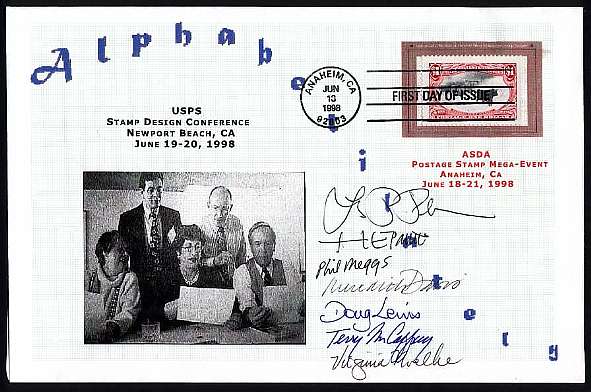 Alphabetilately
ANAHEIM, CA
JUN
13
1998
92803
FIRST DAY OF ISSUE
USPS
STAMP DESIGN CONFERENCE
NEWPORT BEACH, CA
JUNE 19-20, 1998
ASDA
POSTAGE STAMP MEGA-EVENT
ANAHEIM, CA
JUNE 18-21, 1998
Phil Meggs
Meredith Davis
Doug Lewis
Terry McCaffrey
Virginia Noelke